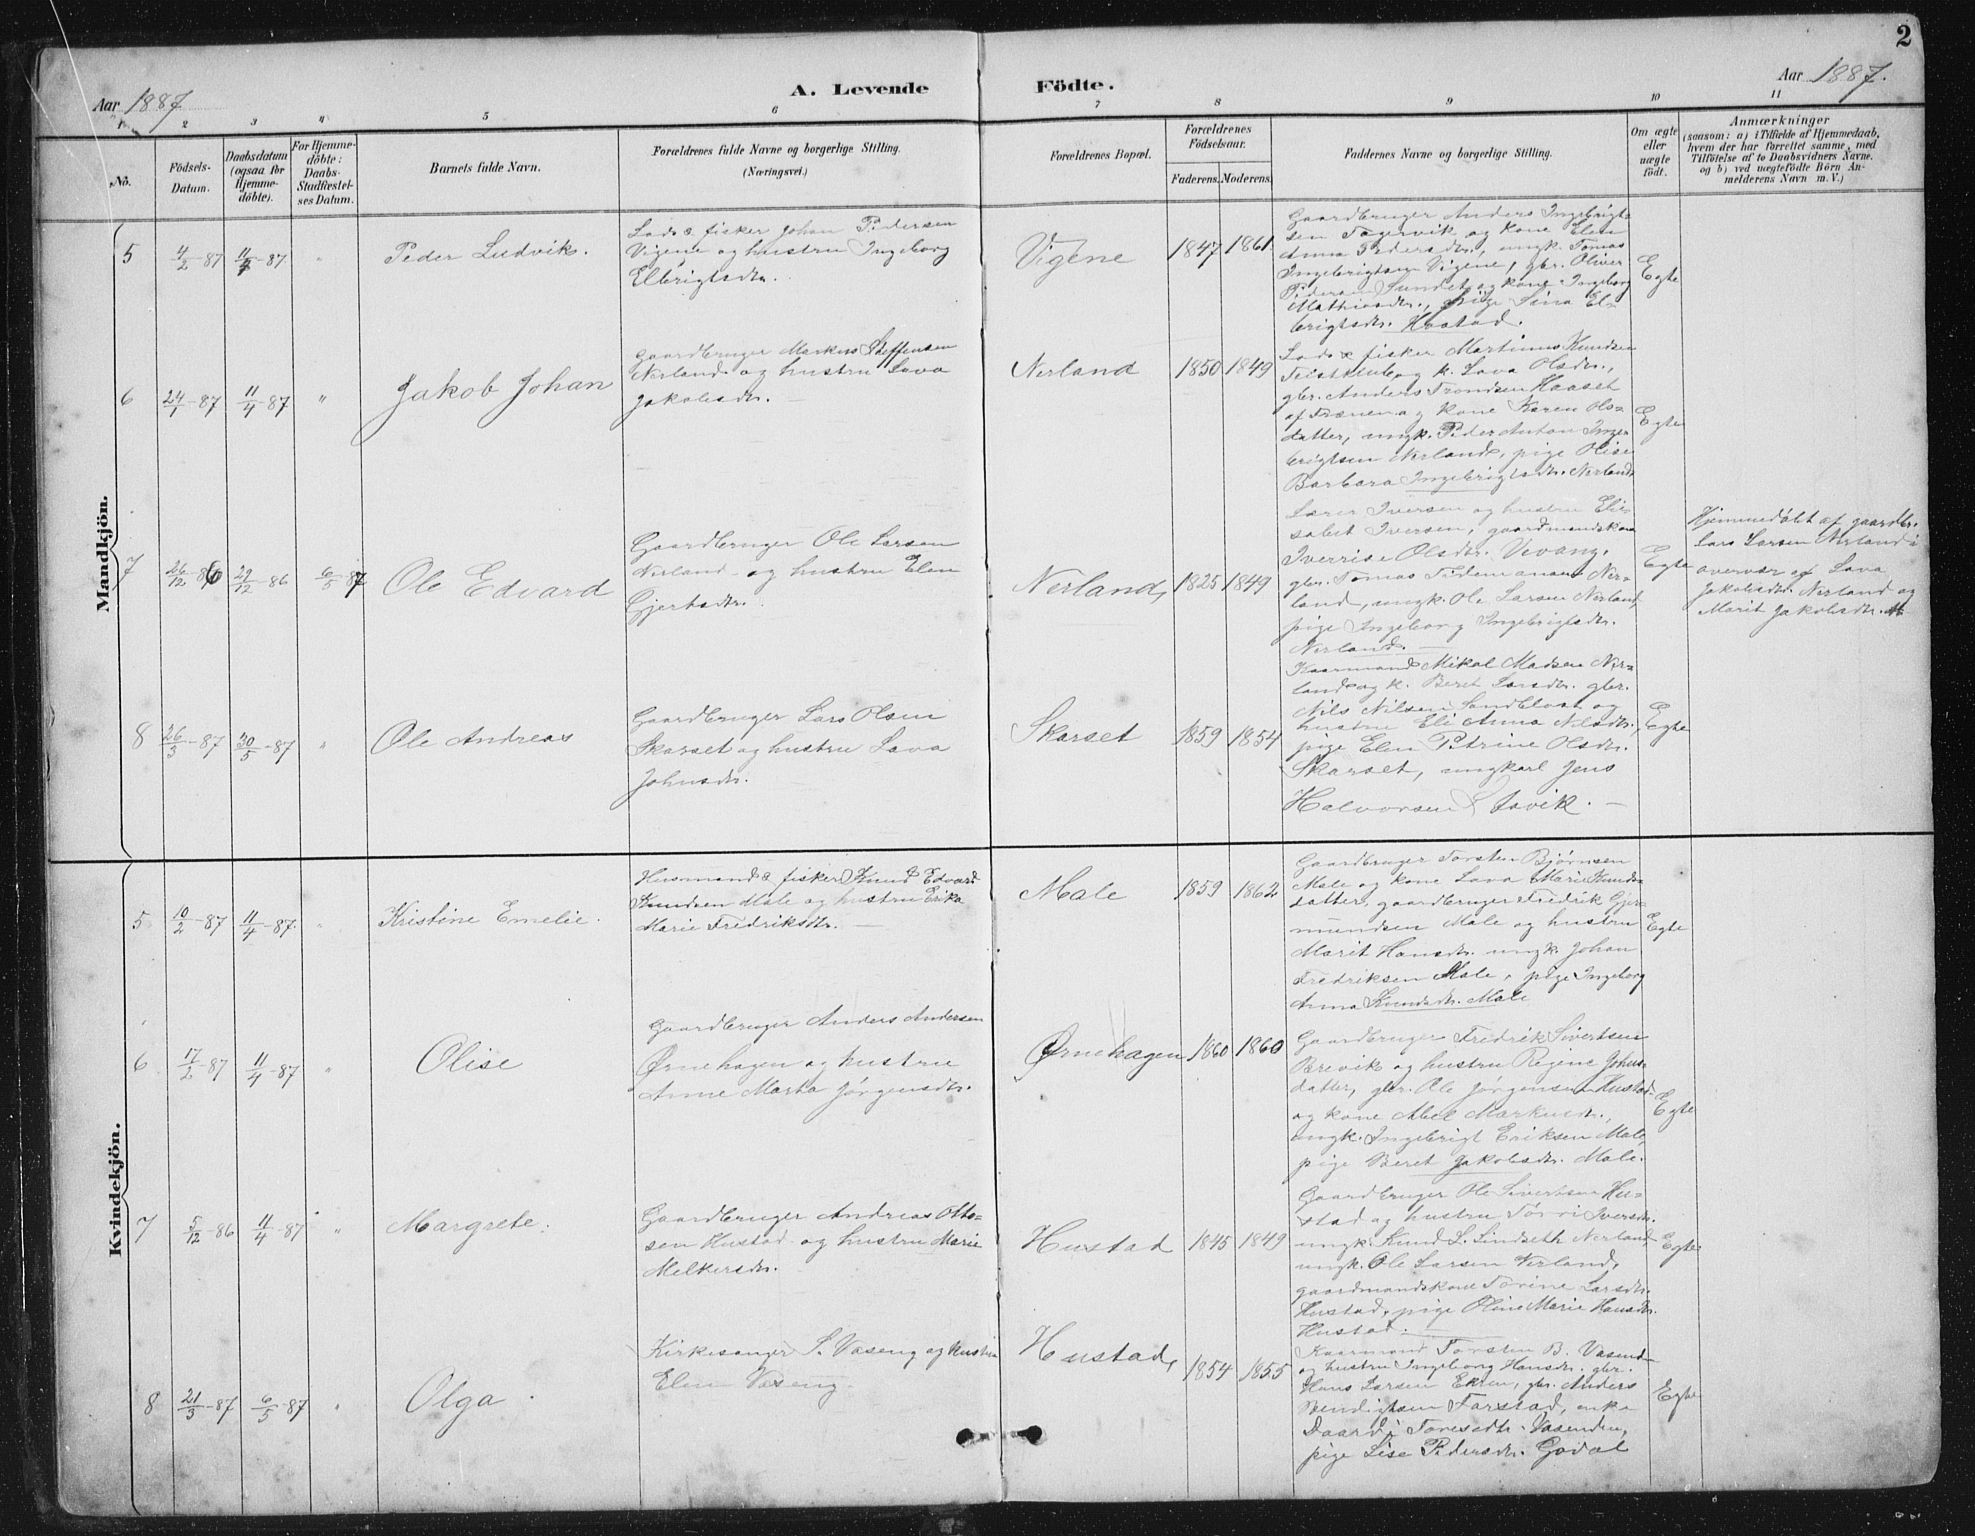 2
Aar 1887
A. Levende Födte.
Aar 1887.
1 2 3 4 5 6 7 8 9 10 11
No.
Födsels-Datum.
Daabsdatum (ogsaa for Hjemme-döbte).
For Hjemme-döbte: Daabs-Stadfæstel-ses Datum.
Barnets fulde Navn.
Forældrenes fulde Navne og borgerlige Stilling. (Næringsvei.)
Forældrenes Bopæl.
Forældrenes Födselsaar.
Faderens. Moderens.
Faddernes Navne og borgerlige Stilling.
Om ægte eller uægte födt.
Anmærkninger
(saasom: a) i Tilfælde af Hjemmedaab,
hvem der har forrettet samme, med
Tilföielse af to Daabsvidners Navne.
og b) ved uægtefödte Börn An-
melderens Navn m. V.)
Mandkjön.
5 4/2-87 11/4-87 " Peder Ludvik.
Lods & fisker Johan Pedersen
Vigene og hustru Ingeborg
Elbrigtsdtr.
Vigene 1847 1861
Gaardbruger Anders Ingebrigt-
sen Fagervik og kone Elen
Anna Pedersdtr., ungk. Tomas
Ingebrigtsen Vigene, gbr. Oliver
Pedersen Sundet og kone Ingeborg
Mathiasdtr., pige Sina El-
brigtsdtr. Hostad.
Egte
6 24/1-87 11/4-87 " Jakob Johan
Gaardbruger Markus Steffensen
Nerland og hustru Lava
Jakobsdtr.
Nerland 1850 1849
Lods & fisker Martinus Knudsen
og k. Lava Olsdtr.,
gbr. Anders Trondsen Haaset
af Frænen og kone Karen Ols-
datter, ungk. Peder Anton Inge-
brigtsen Nerland, pige Olise
Barbara Ingebrigtsdtr. Nerland
Egte
7 26/12-86 29/12-86 6/5-87 Ole Edvard
Gaardbruger Ole Larsen
Nerland og hustru Elen
Gjertsdtr.
Nerland, 1825 1849
Lærer Iversen og hustru Eli-
sabet Iversen, gaardmandskone
Iverrise Olsdtr. Vevang.
gbr. Tomas Tidemansen Ner-
land, ungk. Ole Larsen Nerland,
pige Ingeborg Ingebrigtsdtr.
Nerland.
Egte
Hjemmedøbt af gaardbr.
Lars Larsen Nerland i
overvær af Lava
Jakobsdtr. Nerland og
Marit Jakobsdtr.
8 26/3-87 30/5-87 " Ole Andreas
Gaardbruger Lars Olsen
Skarset og hustru Lava
Johnsdtr.
Skarset 1859 1854
Kaarmand Mikal Madsen Ner-
land og k. Beret Larsdtr. gbr.
Nils Nilsen Sandblaast og
hustru Eli Anna Nilsdtr.,
pige Elen Petrine Olsdtr.
Skarset, ungkarl Jens
Halvorsen Stavik.
Egte
Kvindekjön.
5 10/2-87 11/4-87. " Kristine Emelie.
Husmand & fisker Knud Edvard
Knudsen Male og hustru Erika
Marie Fredriksdtr.
Male 1859 1862
Gaardbruger Torsten Bjørnsen
Male og kone Lava Marie Knuds-
datter, gaardbruger Fredrik Gjer-
mundsen Male og hustru
Marit Hansdtr. ungk. Johan
Fredriksen Male, pige Ingeborg
Anna Knudsdtr. Male
Egte
6 17/2-87 11/4-87 " Olise
Gaardbruger Anders Andersen
Ørnehagen og hustru
Anne Marta Jørgensdtr.
Ørnehagen 1860 1860
Gaardbruger Fredrik Sivertsen
Brevik og hustru Regine Johns-
datter, gbr. Ole Jørgensen Hustad
og kone Abel Markusdtr.,
ungk. Ingebrigt Eriksen Male,
pige Beret Jakobsdtr. Male.
Egte
7 5/12-86 11/4-87 " Margrete.
Gaardbruger Andreas Otto-
sen Hustad og hustru Marie
Melkersdtr.
Hustad 1845 1849
Gaardbruger Ole Sivertsen Hu-
stad og hustru Iversdtr.
ungk. Knud L. Lindseth Nerland,
ungk. Ole Larsen Nerland,
gaardmandskone Torine Larsdtr.
Hustad, pige Oline Marie Hansdtr.
Hustad.
Egte
8 21/3-87 6/5-87 " Olga.
Kirkesanger S. Vaseng og hustru
Elen Vaseng
Hustad, 1854 1855
Kaarmand Torsten B. Vasend-
og hustru Ingeborg Hansdtr. gbr.
Hans Larsen gbr. Anders
Bendigtsen Farstad, enke
Toresdtr. Vasenden,
pige Lise Pedersdtr. Godal
Egte